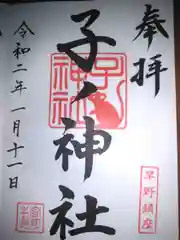 奉拝
子ノ神社
子ノ神社
早野鎮座
令和二年一月十一日